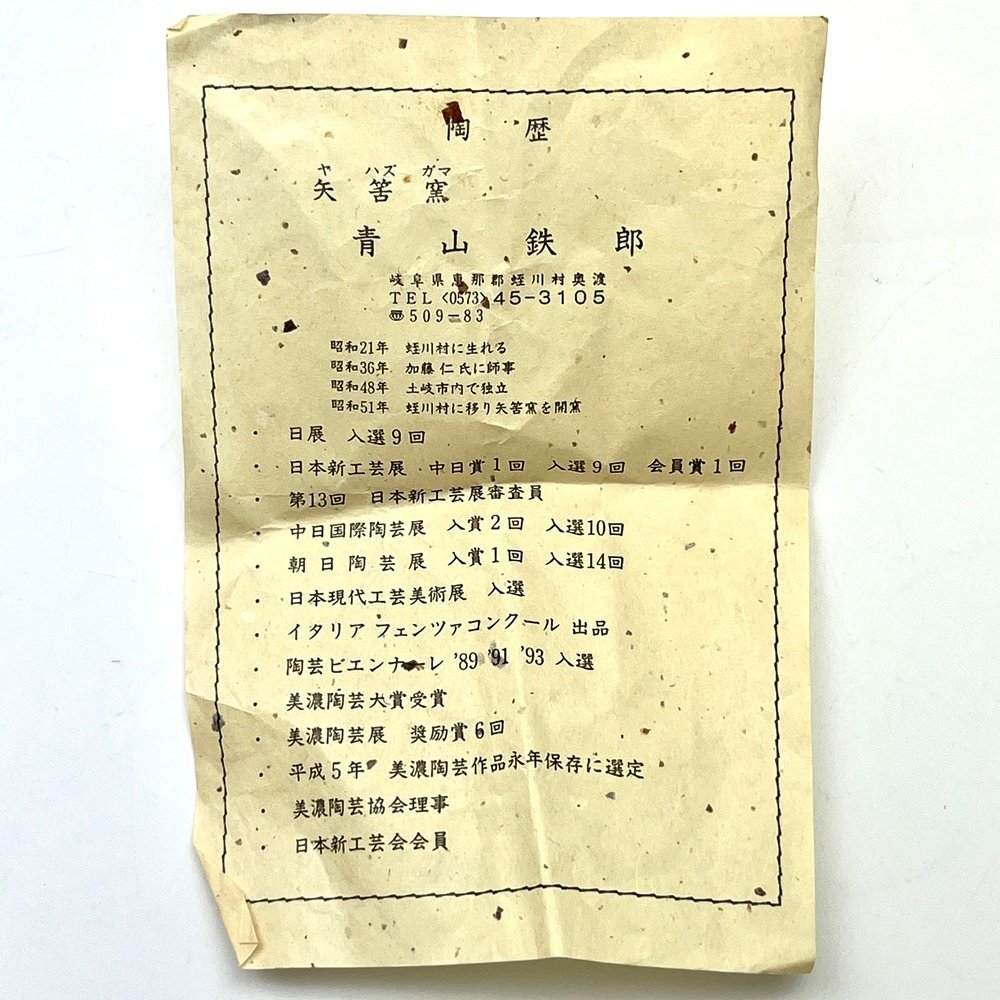 陶歴
ヤ ハズ ガマ
矢筈窯
青山鉄郎
岐阜県恵那郡蛭川村奥渡
TEL〈0573〉45-3105
〠509-83
昭和21年 蛭川村に生れる
昭和36年 加藤仁氏に師事
昭和48年 土岐市内で独立
昭和51年 蛭川村に移り矢筈窯を開窯
・ 日展 入選9回
・ 日本新工芸展 中日賞1回 入選9回 会員賞1回
・ 第13回 日本新工芸展審査員
・ 中日国際陶芸展 入賞2回 入選10回
・ 朝日陶芸展 入賞1回 入選14回
・ 日本現代工芸美術展 入選
・ イタリアフェンツァコンクール 出品
・ 陶芸ビエンナーレ '89 '91 '93 入選
・ 美濃陶芸大賞受賞
・ 美濃陶芸展 奨励賞6回
・ 平成5年 美濃陶芸作品永年保存に選定
・ 美濃陶芸協会理事
・ 日本新工芸会会員